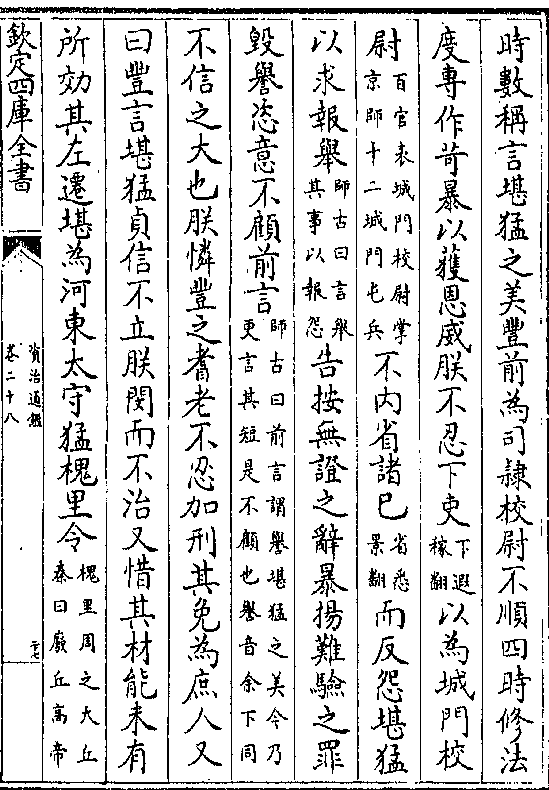 時數稱言堪猛之美豐前為司隸校尉不順四時修法
度專作苛暴以獲虛威朕不忍下吏下遐稼翻以為城門校
尉百官表城門校尉掌京師十二城門屯兵不内省諸已省悉景翻而反怨堪猛
以求報舉師古曰言舉其事以報怨告按無證之辭暴揚難驗之罪
毀譽恣意不顧前言師古曰前言謂譽堪猛之美今乃更言其短是不顧也譽音余下同
不信之大也朕憐豐之耆老不忍加刑其免為庶人又
曰豐言堪猛貞信不立朕閔而不治又惜其材能未有
所効其左遷堪為河東太守猛槐里令槐里周之大丘秦曰廢丘高帝
欽定四庫全書
資治通鑑
卷二十八
二十七